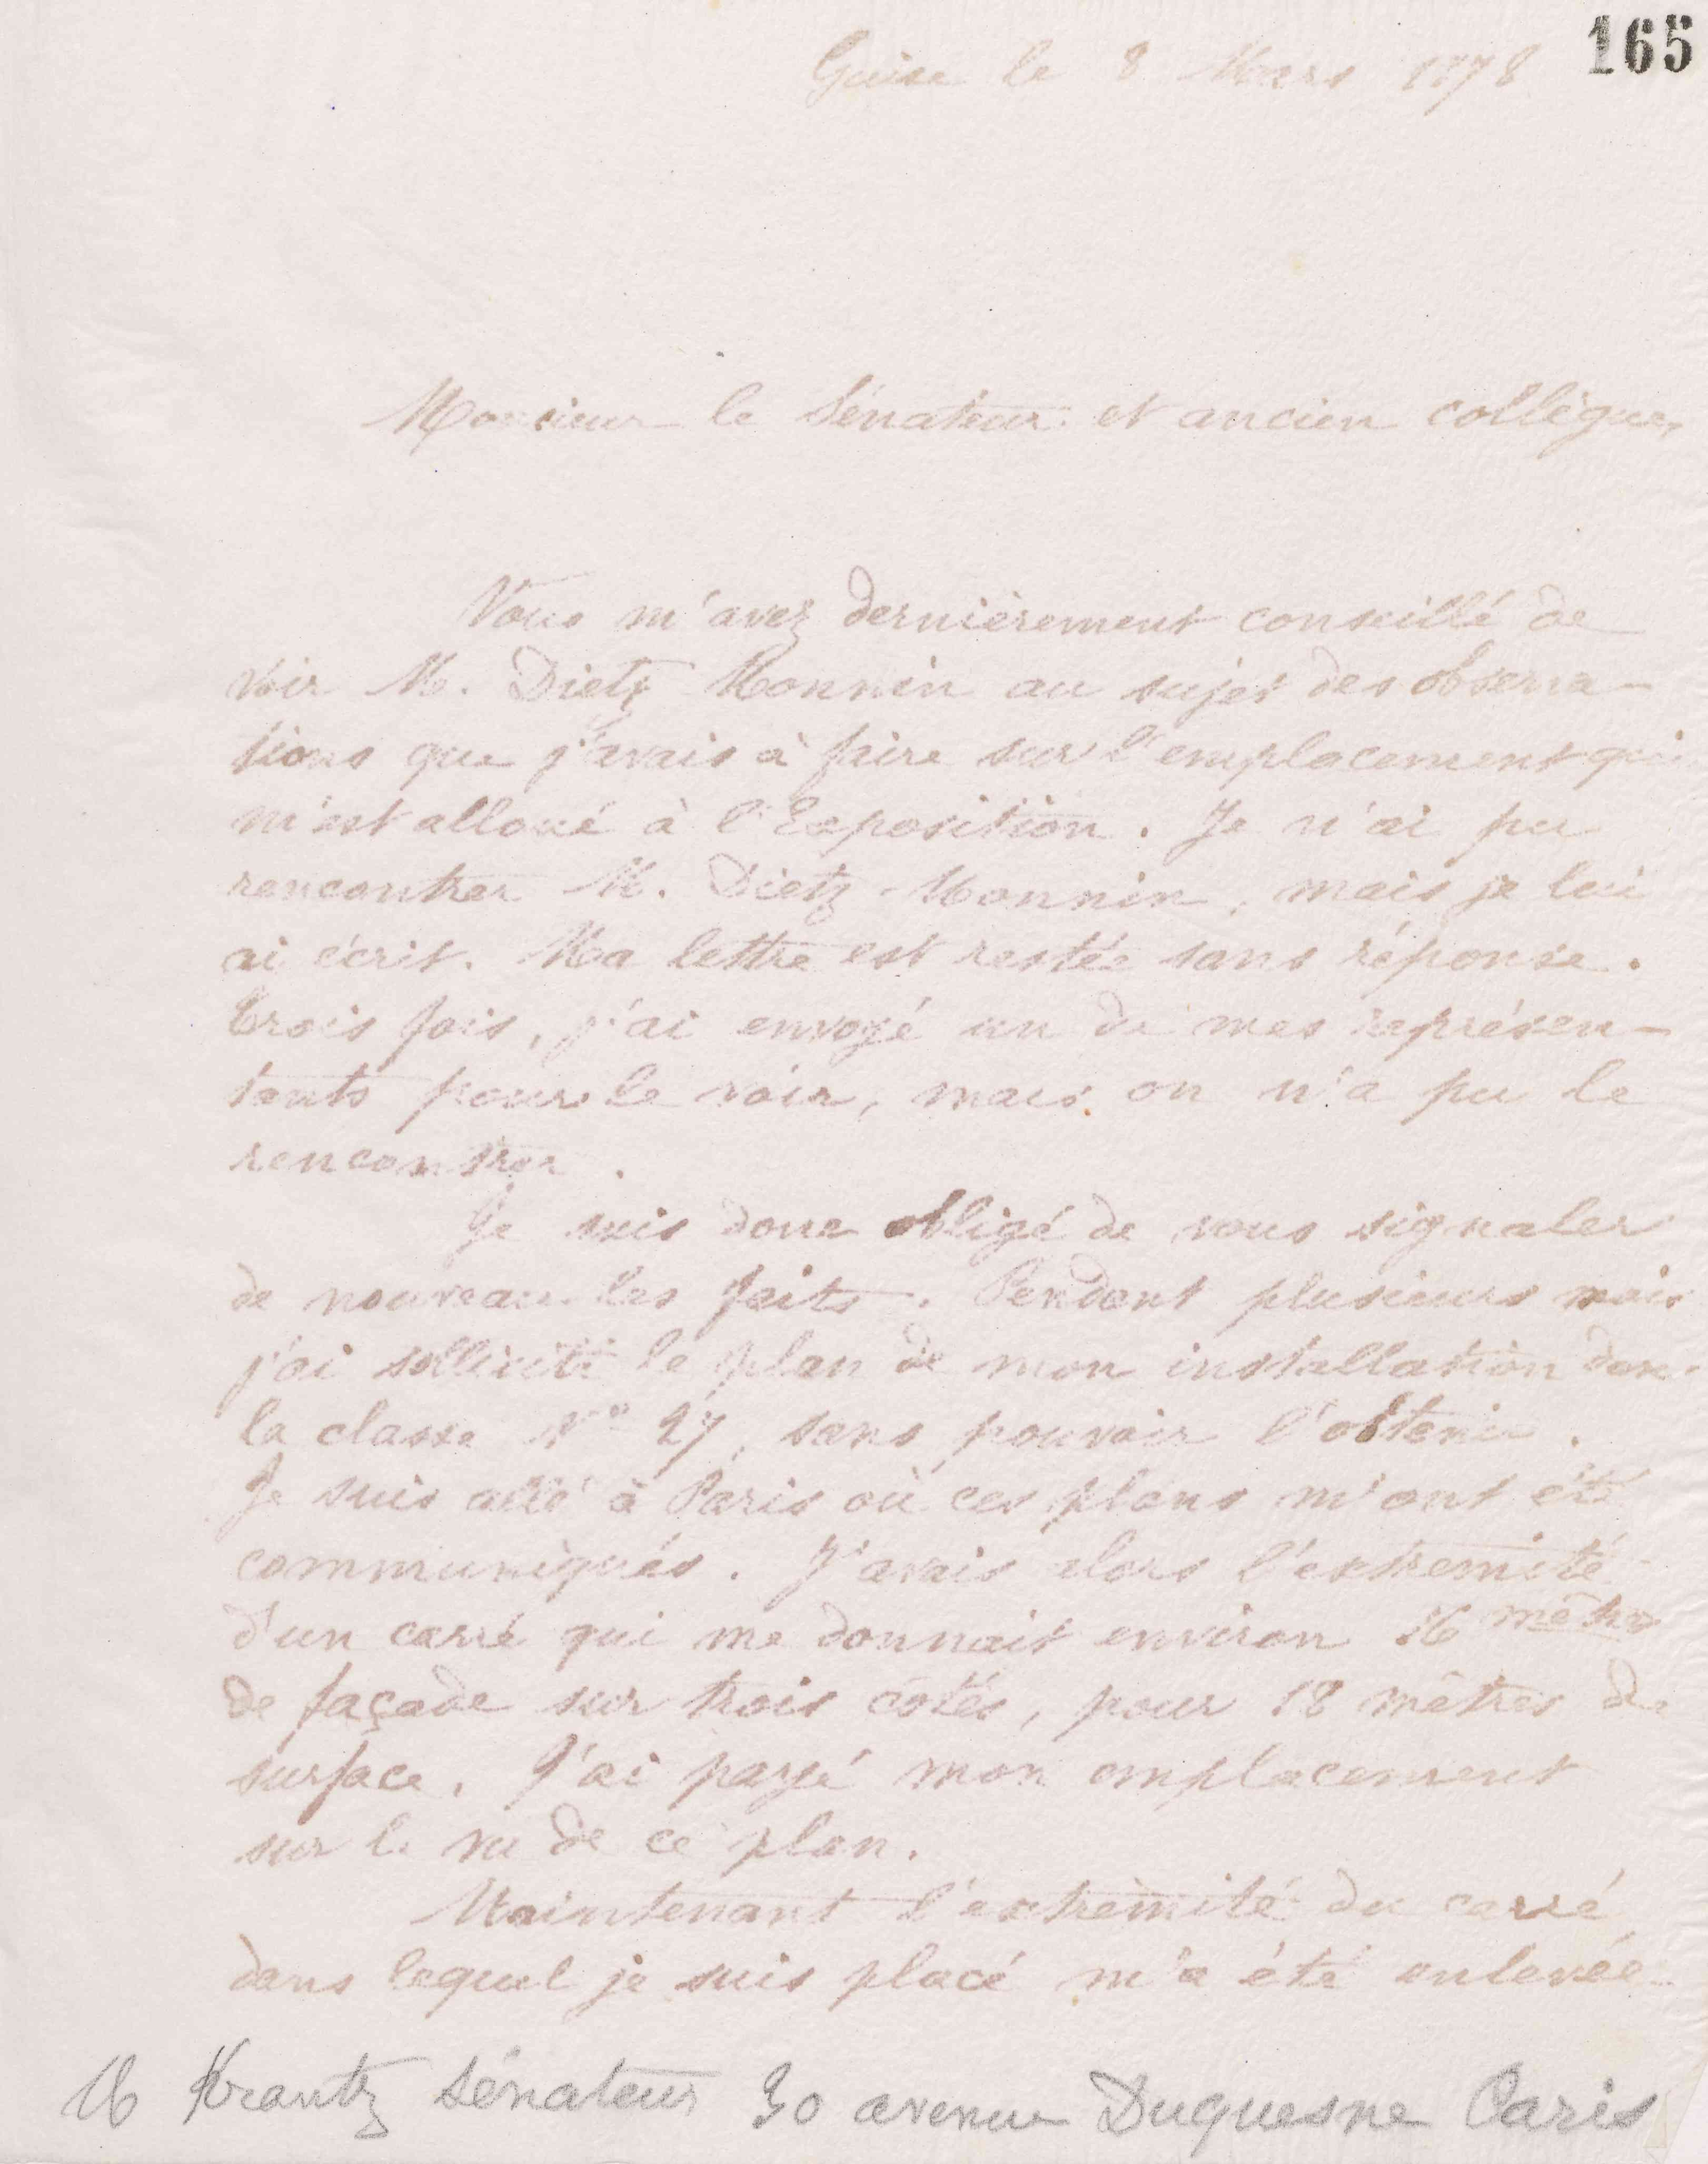 165
Guise le 8 Mars 1878
Monsieur le Sénateur et ancien collègue,
Vous m'avez dernièrement conseillé de
voir M. Dietz Monnin au sujet des observa-
tions que j'avais à faire sur l'emplacement qui
m'est alloué à l'Exposition. Je n'ai pu
rencontrer M. Dietz-Monnin, mais je lui
ai écrit. Ma lettre est restée sans réponse.
Trois fois, j'ai envoyé un de mes représen-
tants pour le voir, mais on n'a pu le
rencontrer.
Je suis donc obligé de vous signaler
de nouveau les faits. Pendant plusieurs mois
j'ai sollicité le plan de mon installation dans
la classe No 27, sans pouvoir l'obtenir.
Je suis allé à Paris où ces plans m'ont été
communiqués. J'avais alors l'extremité
d'un carré qui me donnait environ 16 mètres
de façade sur trois côtés, pour 18 mètres de
surface. J'ai payé mon emplacement
sur le vu de ce plan.
Maintenant l'extrèmité du carré
dans lequel je suis placé m'a été enlevée
M Krantz Sénateur 30 avenue Duquesne Paris